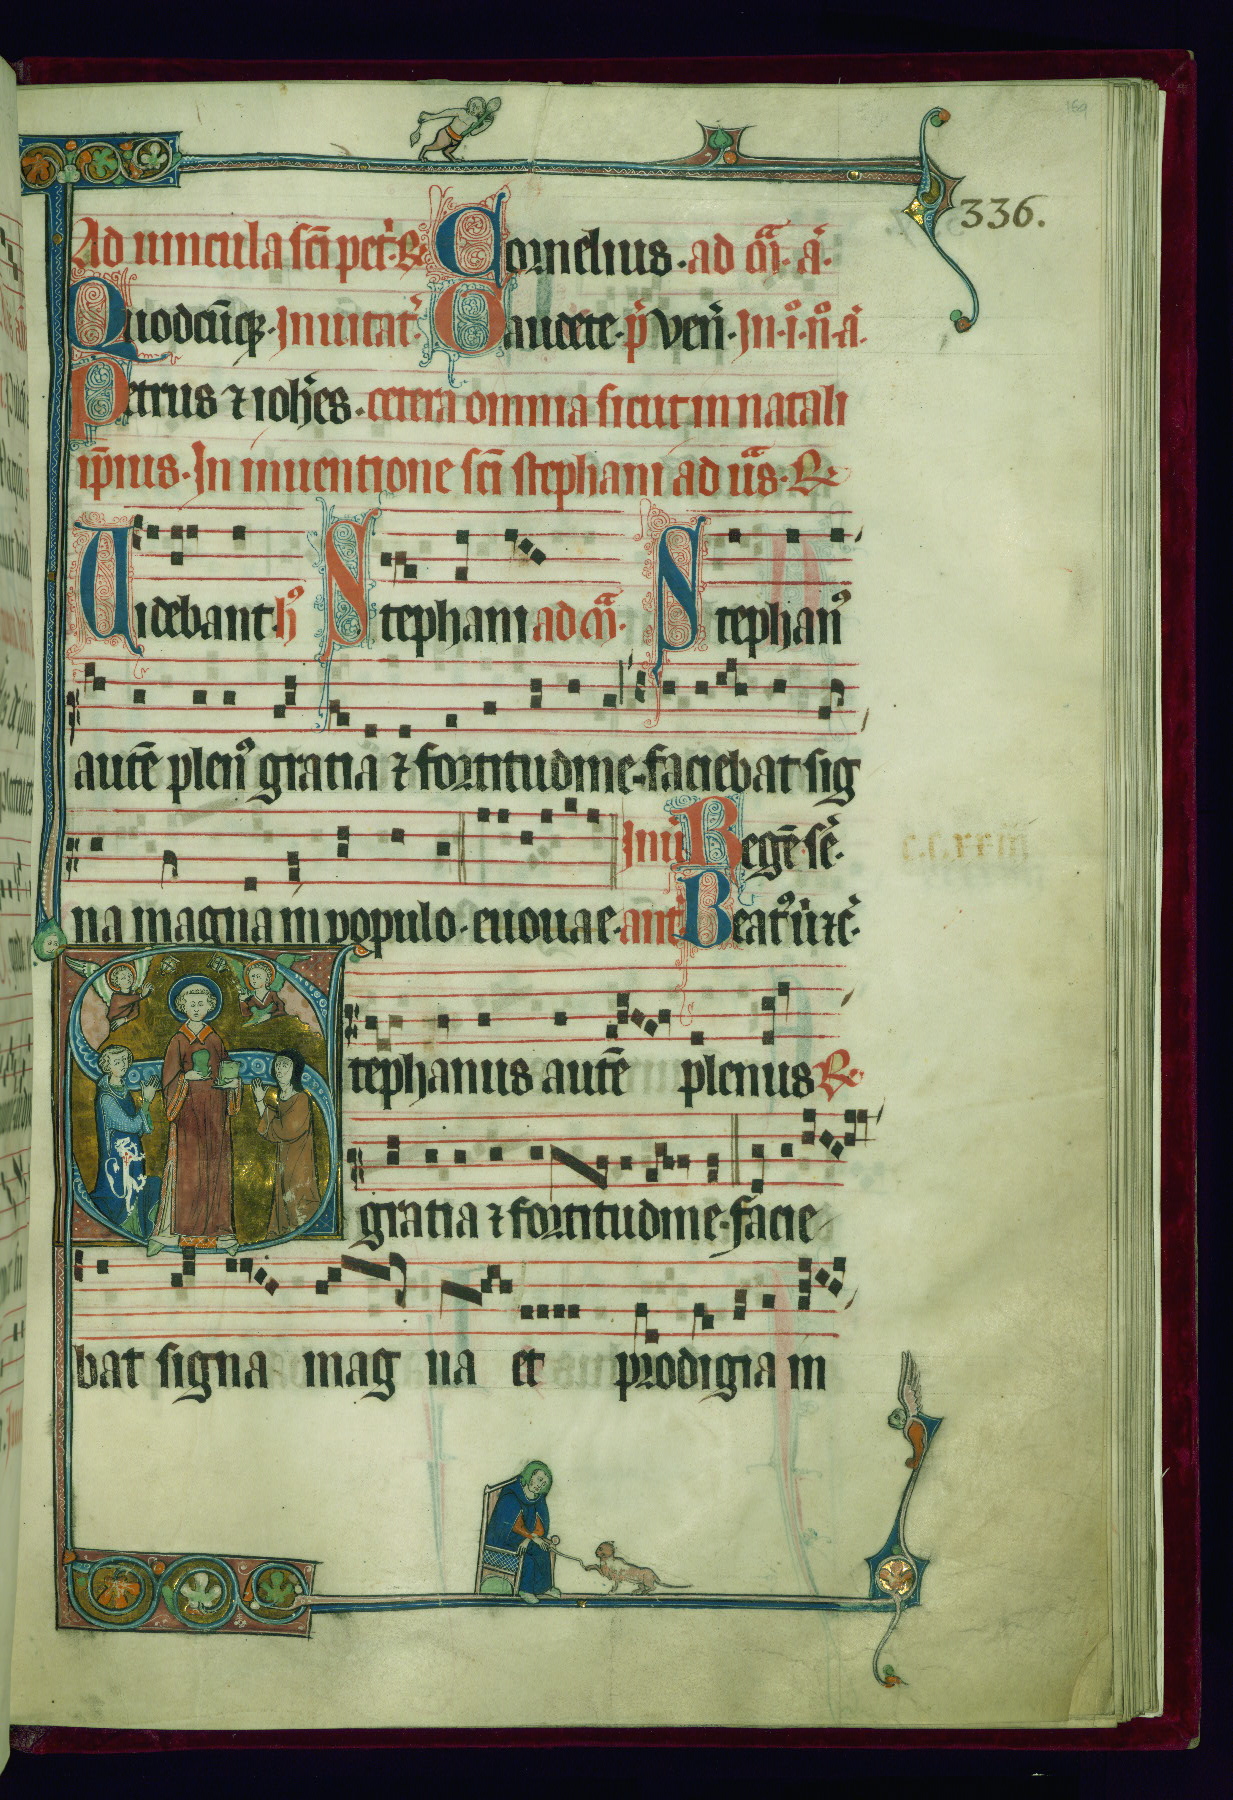 169
336.
Ad uincula sc̄i pet᷑. ℟. Cornelius. ad m̄. a᷑.
Quodcūq̨. Inuitat᷑. Gaudete. p᷑ Ven᷑. In. i᷑. n᷑. a᷑.
Petrus ⁊ ioh̄es. cetera omnia sicut in natali
ip̄ius. In inuentione sc̄i stephani ad ūs. ℟
Uidebant. h᷑ Stephani ad m̄. Stephan᷒
autē plen᷒ gratia ⁊ fortitudine. faciebat sig
Inui Regē. sē.
c.c.xxiii
na magna in populo. euouae. ant᷑ Beat᷒ uir ⁊c᷑.
Stephanus autē plenus ℟
gratia ⁊ fortitudine. facie
bat signa mag na et prodigia in